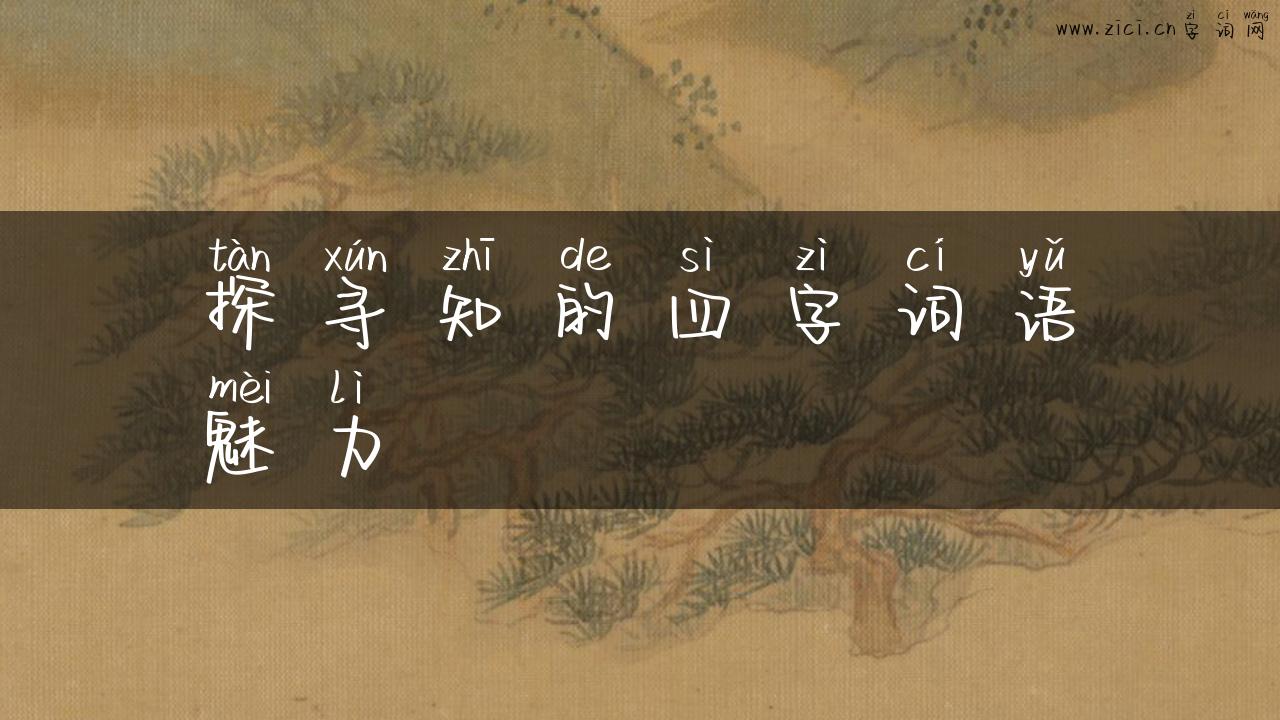 zì cí wǎng
www.zici.cn字词网
tàn xún zhī de sì zì cí yǔ
探寻知的四字词语
mèi lì
魅力